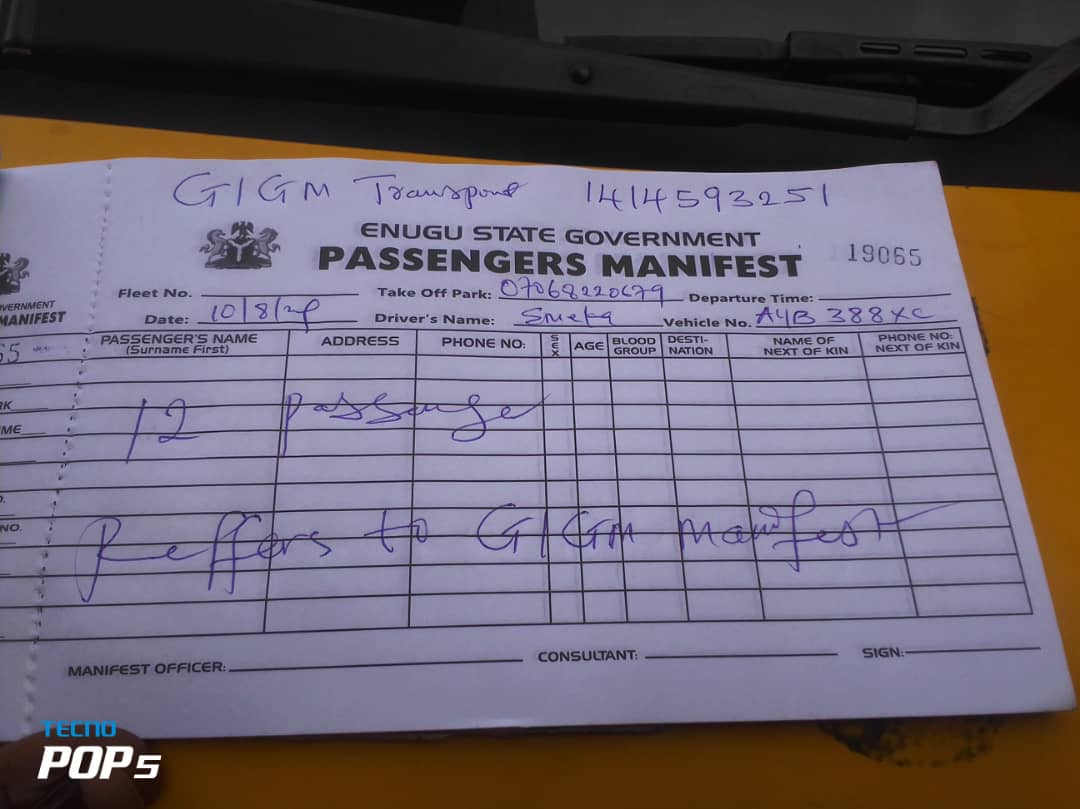 GIGM Transport 1414593251
ENUGU STATE GOVERNMENT
PASSENGERS MANIFEST 19065
Fleet No. Take Off Park: 07068220679 Departure Time:
Date: 10/8/2 Driver's Name: Emeka Vehicle No. AYB 388XC
PASSENGER'S NAME (Surname First) ADDRESS PHONE NO: SEX AGE BLOOD GROUP DESTI-NATION NAME OF NEXT OF KIN PHONE NO: NEXT OF KIN
12 passenge
Reffers to GIGM manifest
MANIFEST OFFICER: CONSULTANT: SIGN:
VERNMENT
MANIFEST
65
RK
ME
NO.
TECNO
POP 5